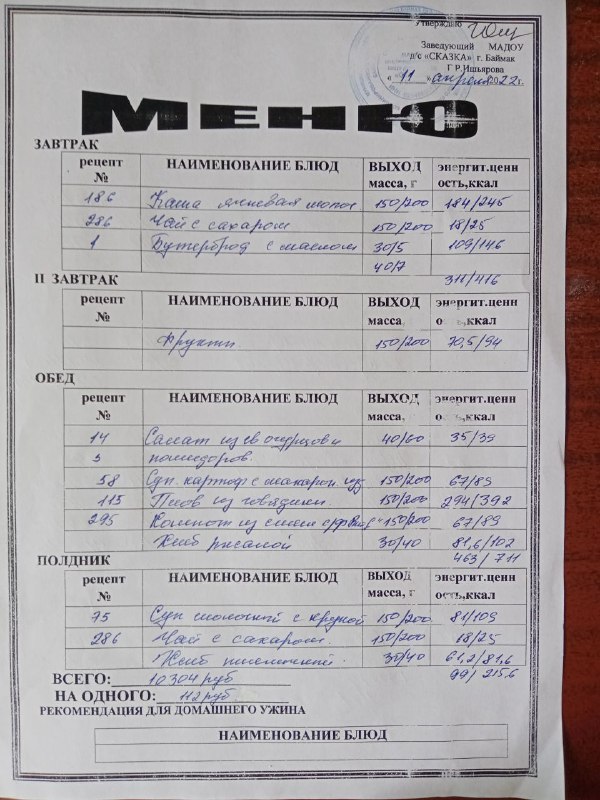 Утверждаю
Заведующий МАДОУ
д/с «СКАЗКА» г. Баймак
Г.Р.Ишьярова
« 11 » апреля 2022 г.
МЕНЮ
ЗАВТРАК
рецепт № НАИМЕНОВАНИЕ БЛЮД ВЫХОД масса, г энергит.ценность,ккал
186 Каша ячневая 150/200 184/245
286 Чай с сахаром 150/200 18/25
1 Бутерброд с маслом 30/5 109/146
40/7
311/416
II ЗАВТРАК
рецепт № НАИМЕНОВАНИЕ БЛЮД ВЫХОД масса, энергит.ценность,ккал
Фрукты 150/200 70,5/94
ОБЕД
рецепт № НАИМЕНОВАНИЕ БЛЮД ВЫХОД масса, энергит.ценность,ккал
14 Салат из св огурцов и 40/60 35/39
помидоров.
58 Суп картоф с макарон. изд 150/200 67/89
115 Плов из говядины 150/200 294/392
295 Компот из смеси 150/200 67/89
Хлеб ржаной 30/40 81,6/102
463/711
ПОЛДНИК
рецепт № НАИМЕНОВАНИЕ БЛЮД ВЫХОД масса, г энергит.ценность,ккал
75 Суп молочный с крупой 150/200 81/109
286 Чай с сахаром. 150/200 18/25
Хлеб пшеничный. 30/40 61,2/81,6
99/215,6
ВСЕГО: 10304 руб
НА ОДНОГО: 112 руб
РЕКОМЕНДАЦИЯ ДЛЯ ДОМАШНЕГО УЖИНА
НАИМЕНОВАНИЕ БЛЮД